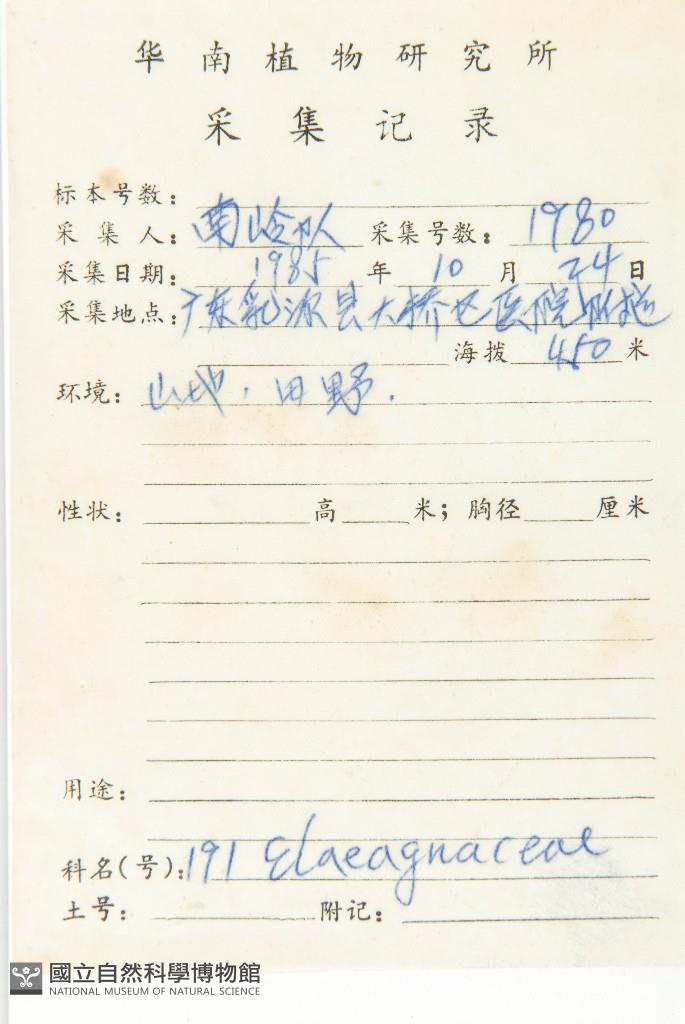 华南植物研究所
采集记录
标本号数：
采集人：南岭队 采集号数：1980
采集日期：1985年10月24日
采集地点：广东乳源县大桥区医院附近
海拨450米
环境：山地．田野．
性状： 高 米；胸径 厘米
用途：
科名（号）：191 Elaeagnaceae
土号： 附记：
國立自然科學博物館
NATIONAL MUSEUM OF NATURAL SCIENCE